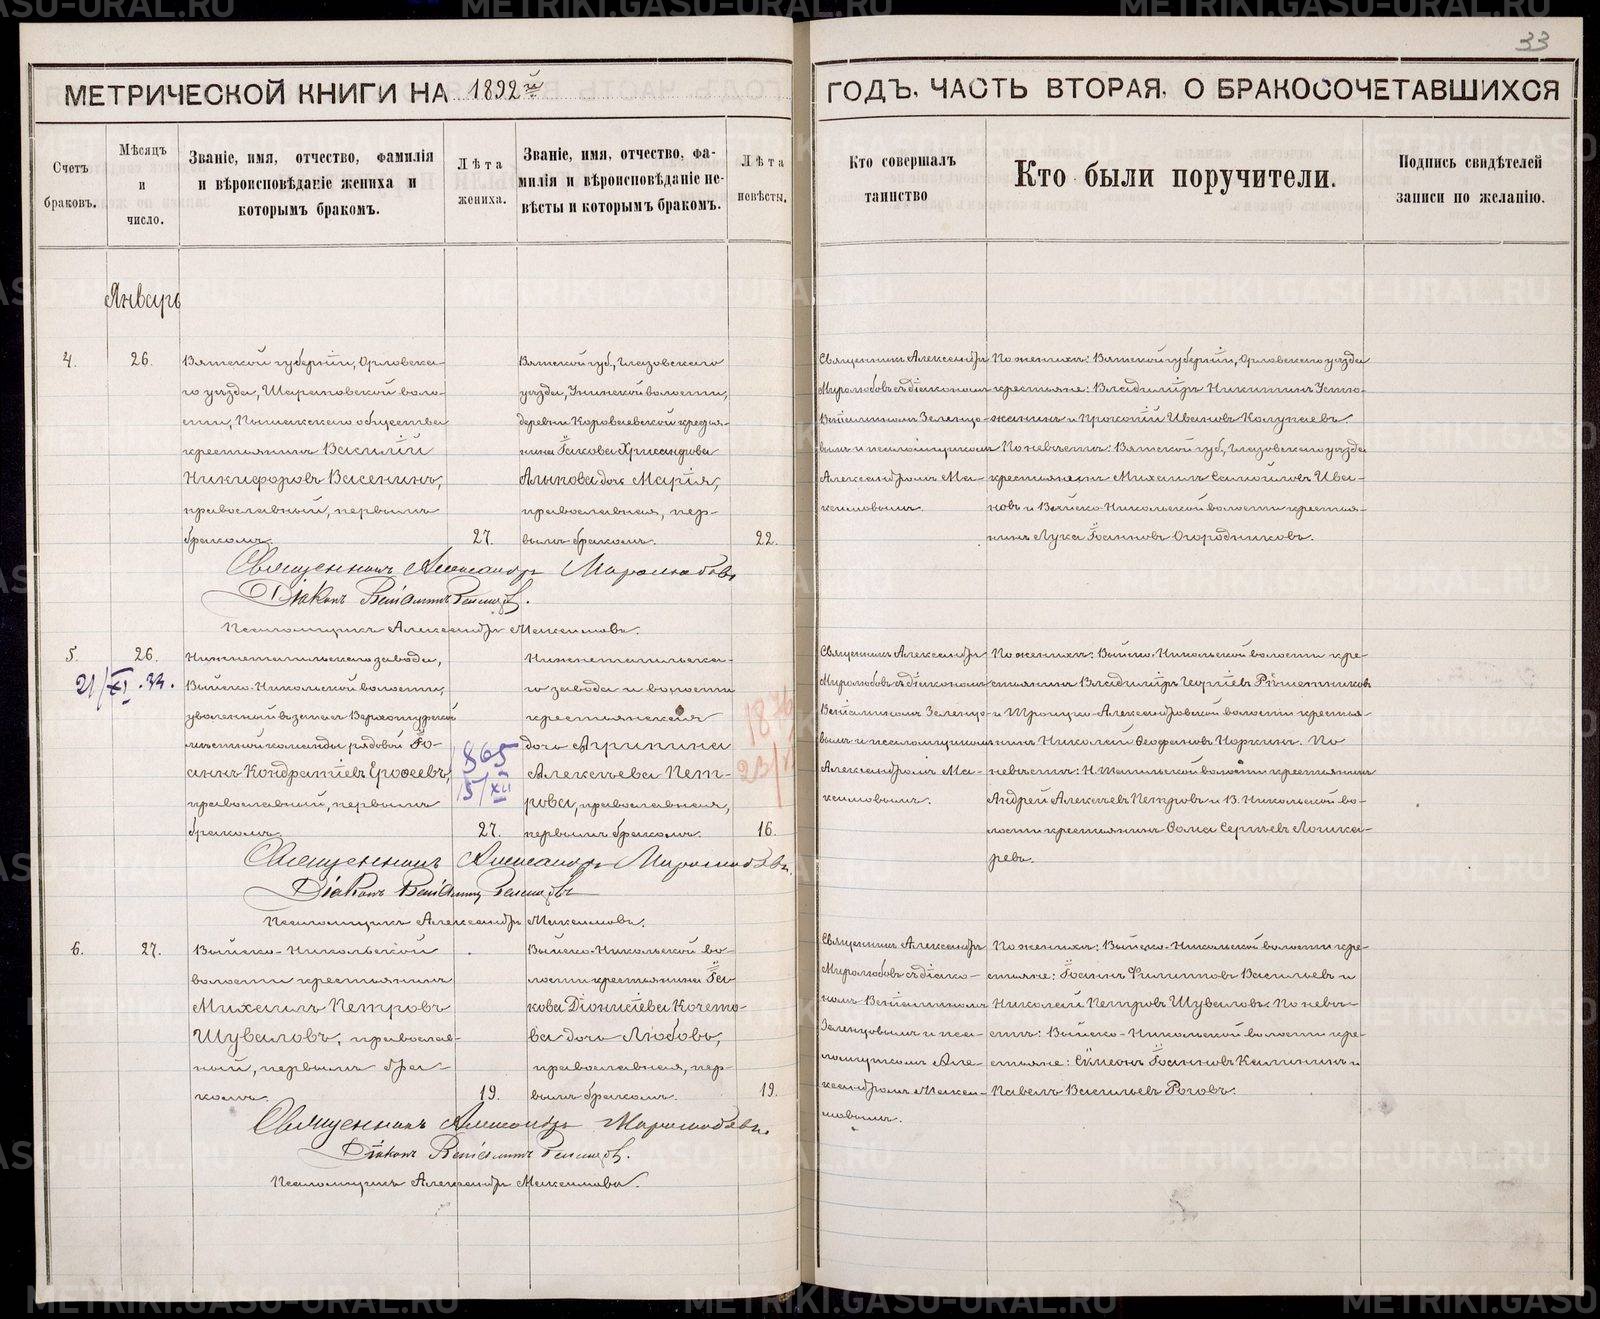 33
МЕТРИЧЕСКОЙ КНИГИ НА 1892й
ГОДЪ, ЧАСТЬ ВТОРАЯ, О БРАКОСОЧЕТАВШИХСЯ
Счетъ
браковъ.
Мѣсяцъ
и
число.
Званіе, имя, отчество, фамилія
и вѣроисповѣданіе жениха и
которымъ бракомъ.
Лѣта
жениха.
Званіе, имя, отчество, фа-
милія и вѣроисповѣданіе не-
вѣсты и которымъ бракомъ.
Лѣта
невѣсты.
Кто совершалъ
таинство
Кто были поручители.
Подпись свидѣтелей
записи по желанію.
Январь
4.
26.
Вятской губерніи, Орловска-
го уѣзда, Шараповской воло-
сти, общества
крестьянинъ Василій
Никифоровъ Васенинъ,
православный, первымъ
бракомъ.
27.
Вятской губ., Глазовскаго
уѣзда, Унинской волости,
деревни крестья-
нина Іакова Хрисанфова
дочь Марія,
православная, пер-
вымъ бракомъ.
22.
Священникъ Александръ
Миролюбовъ съ діакономъ
Веніаминомъ Зеленцо-
вымъ и псаломщикомъ
Александромъ Ма-
ксимовымъ.
По женихѣ: Вятской губерніи, Орловскаго уѣзда
крестьяне: Владиміръ Никитинъ Устю-
жанинъ и Прокопій Ивановъ Колупаевъ.
По невѣстѣ: Вятской губ., Глазовскаго уѣзда
крестьянинъ Михаилъ Самойловъ Ива-
новъ и Выйско-Никольской волости крестья-
нинъ Лука Іоанновъ Огородниковъ.
Священникъ Александръ Миролюбовъ
Діаконъ Веніаминъ Зеленцовъ.
Псаломщикъ Александръ Максимовъ.
5.
26.
21/XI.
Нижнетагильскаго завода,
Выйско-Никольской волости,
уволенный въ запасъ Верхотурской
мѣстной команды рядовой Іо-
аннъ Кондратіевъ Ерофеевъ,
православный, первымъ
бракомъ.
865
5/XII
27.
Нижнетагильска-
го завода и волости
крестьянская
дочь Агрипина
Алексѣева Пет-
рова, православная,
первымъ бракомъ.
16.
Священникъ Александръ
Миролюбовъ съ діакономъ
Веніаминомъ Зеленцо-
вымъ и псаломщикомъ
Александромъ Ма-
ксимовымъ.
По женихѣ: Выйско-Никольской волости кре-
стьянинъ Владиміръ Георгіевъ Рѣшетниковъ
и Троицко-Александровской волости крестья-
нинъ Николай Ѳеофановъ Норкинъ. По
невѣстѣ: Н.Тагильской волости крестьянинъ
Андрей Алексѣевъ Петровъ и В. Никольской во-
лости крестьянинъ Ѳома Сергѣевъ Лошка-
ревъ.
Священникъ Александръ Миролюбовъ.
Діаконъ Веніаминъ Зеленцовъ
Псаломщикъ Александръ Максимовъ.
6.
27.
Выйско-Никольской
волости крестьянинъ
Михаилъ Петровъ
Шуваловъ, православ-
ный, первымъ бра-
комъ.
19.
Выйско-Никольской во-
лости крестьянина Іа-
кова Діонисіева Кочето-
ва дочь Любовь,
православная, пер-
вымъ бракомъ.
19.
Священникъ Александръ
Миролюбовъ съ діако-
номъ Веніаминомъ
Зеленцовымъ и пса-
ломщикомъ Але-
ксандромъ Макси-
мовымъ.
По женихѣ: Выйско-Никольской волости кре-
стьяне: Іоаннъ Филипповъ Васильевъ и
Николай Петровъ Шуваловъ. По невѣ-
стѣ: Выйско-Никольской волости кре-
стьяне: Сѵмеонъ Іоанновъ Калининъ и
Павелъ Васильевъ Роговъ.
Священникъ Александръ Миролюбовъ.
Діаконъ Веніаминъ Зеленцовъ.
Псаломщикъ Александръ Максимовъ.
METRIKI.GASU-URAL.RU